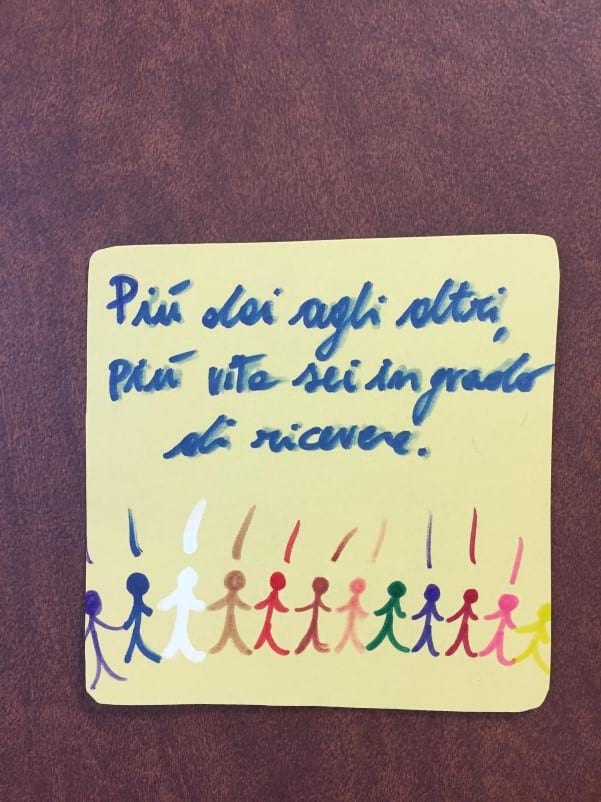 Piú dai agli altri,
piú vita sei in grado
di ricevere.